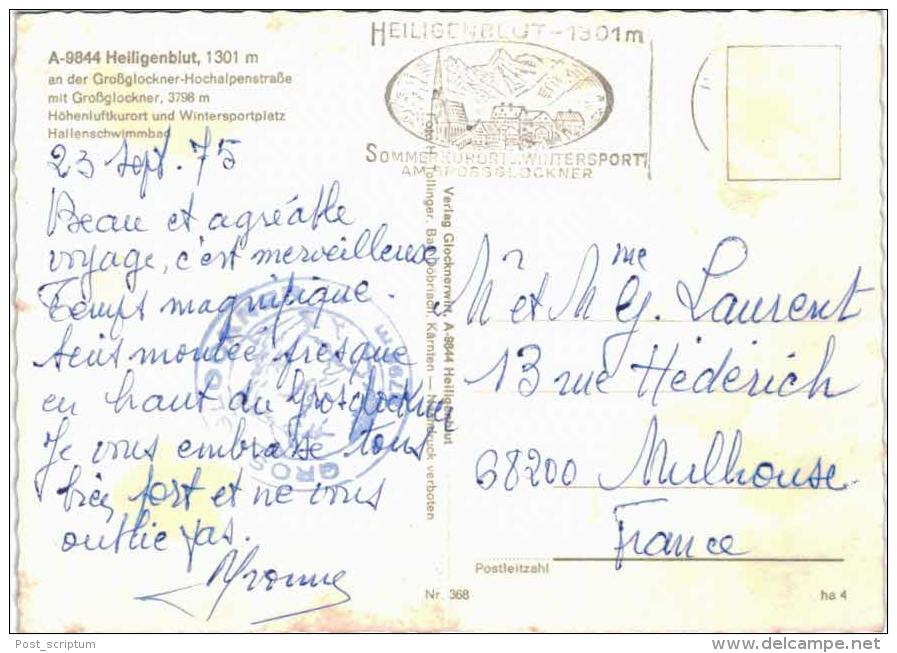 A-9844 Heiligenblut, 1301 m
an der Großglockner-Hochalpenstraße
mit Großglockner, 3798 m
Höhenluftkurort und Wintersportplatz
Hallenschwimmbad
HEILIGENBLUT - 1301m
SOMMERKURORT u. WINTERSPORT
AM GROSSGLOCKNER
23 Sept. 75
Beau et agréable
voyage, c'est merveilleuse
Temps magnifique.
suis montée presque
en haut du Grosglockner
Je vous embrasse tous
bien fort et ne vous
oublie pas.
Yvonne
Verlag Glocknerwirt, A-9844 Heiligenblut
Kärnten — Nachdruck verboten
GROS
Mr et Mme G. Laurent
13 rue Héderich
68200 Mulhouse
France
Postleitzahl
Nr. 368
ha 4
Post_scriptum
delcampe.net